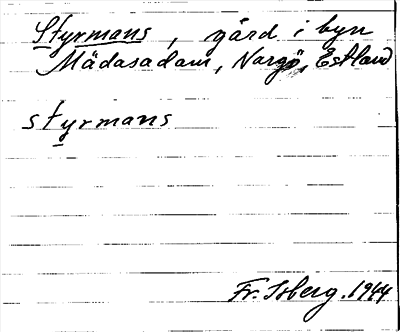 Styrmans, gård i byn
Mädasadam, Nargö, Estland
styrmans
Fr. Isberg. 1944